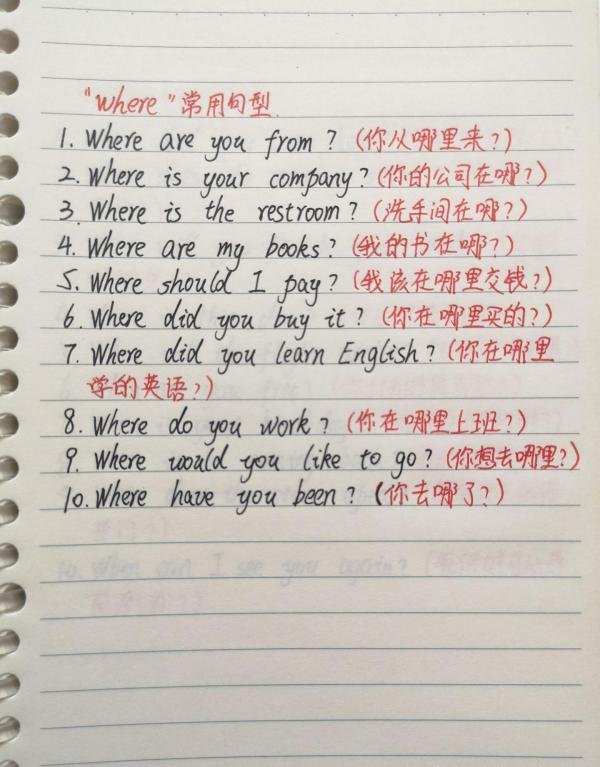 "Where"常用句型.
1. Where are you from? (你从哪里来?)
2. Where is your company? (你的公司在哪?)
3. Where is the restroom? (洗手间在哪?)
4. Where are my books? (我的书在哪?)
5. Where should I pay? (我该在哪里交钱?)
6. Where did you buy it? (你在哪里买的?)
7. Where did you learn English? (你在哪里
学的英语?)
8. Where do you work? (你在哪里上班?)
9. Where would you like to go? (你想去哪里?)
10. Where have you been? (你去哪了?)
10. When can I see you again?